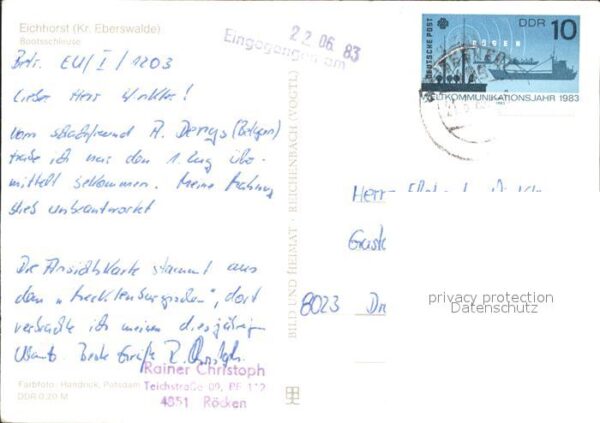 Eichhorst (Kr. Eberswalde)
Bootsschleuse
22.06.83
Eingegangen am
DEUTSCHE POST
DDR 10
WELTKOMMUNIKATIONSJAHR 1983
Betr. EU/I/1203
Lieber Herr Winkler!
vom Schachfreund A. (Belgien)
habe ich nur den 1. Zug über-
mittelt bekommen. Meine Mahnung
blieb unbeantwortet
Die Ansichtskarte stammt aus
dem "Mecklenburgischen", dort
verbrachte ich meinen diesjährigen
Urlaub. Beste Grüße R. Christoph
Rainer Christoph
Teichstraße 09, PF 112
4851 Röcken
Farbfoto: Handrick, Potsdam
DDR 0,20 M
BILD UND HEIMAT · REICHENBACH (VOGTL)
Herrn
8023 Dr
privacy protection
Datenschutz